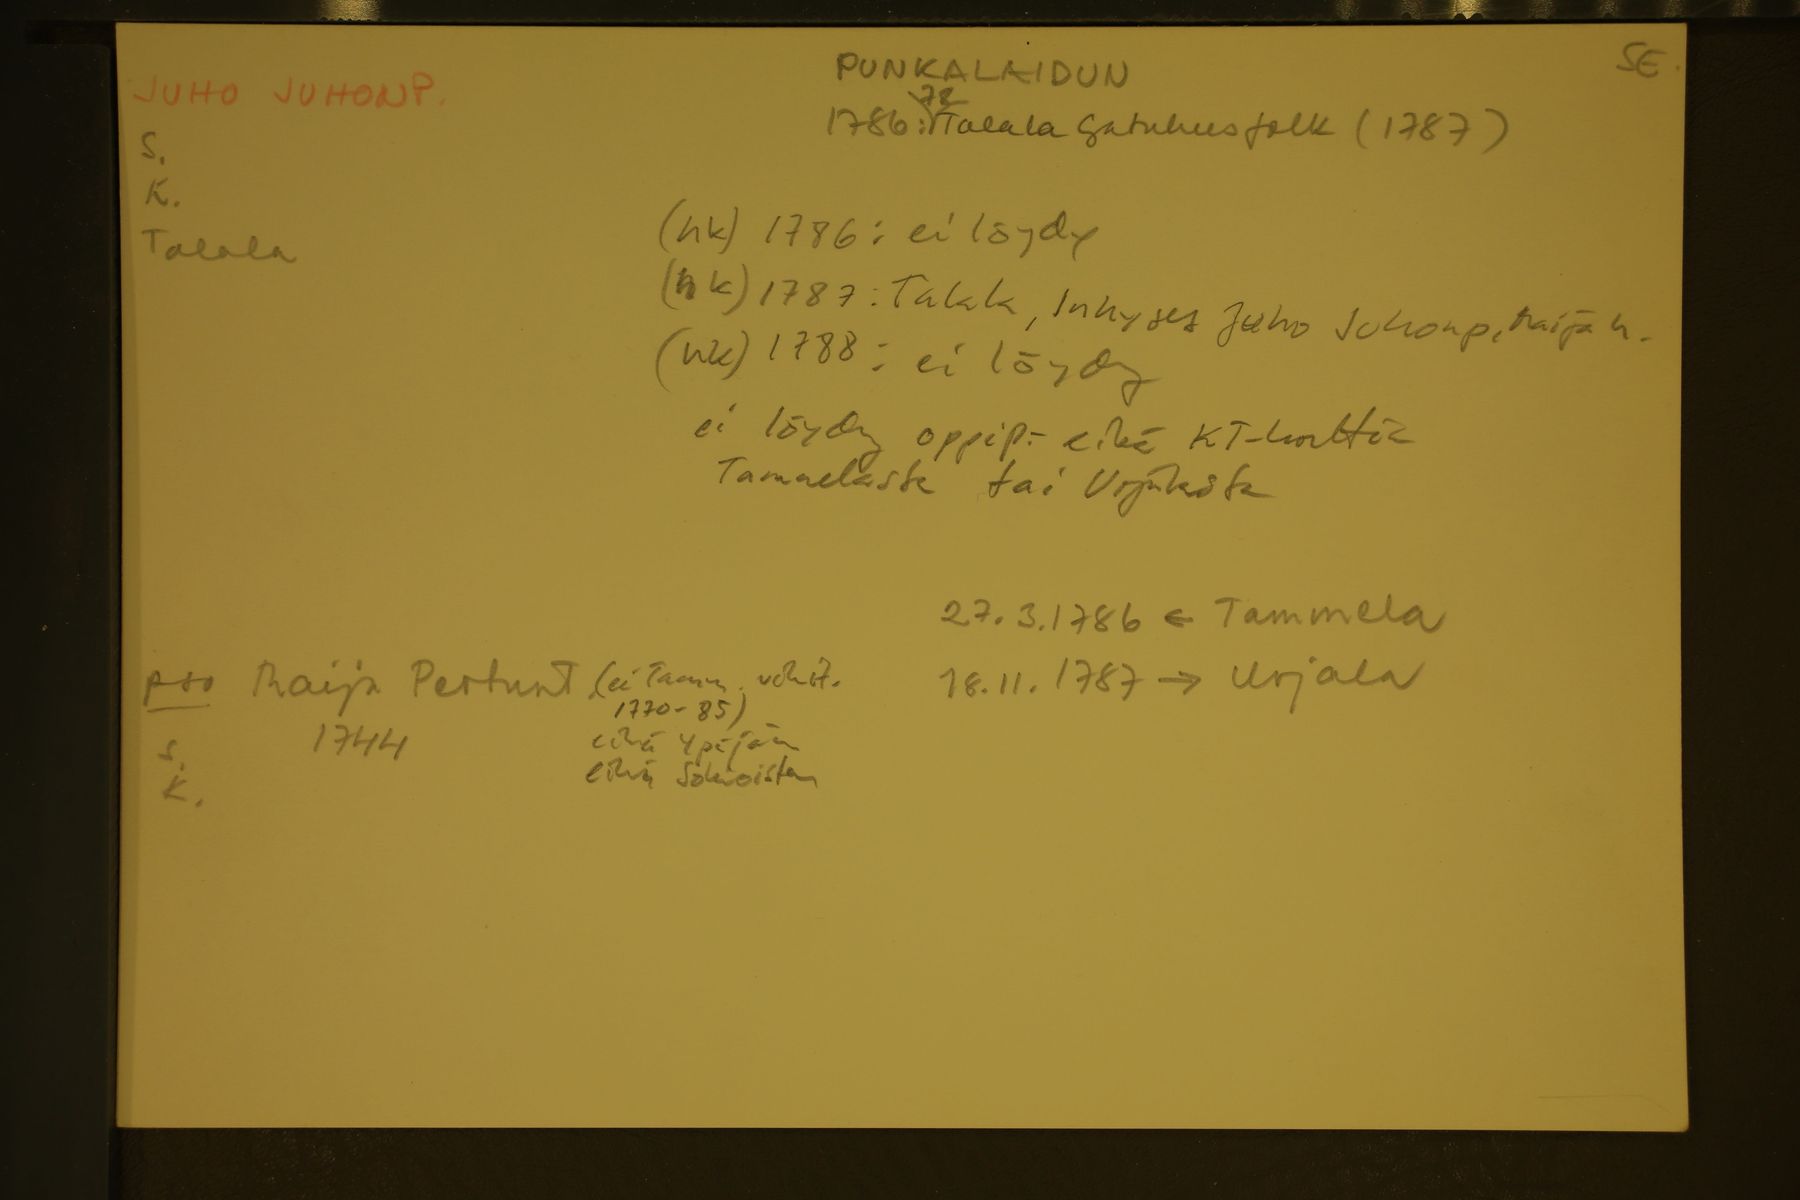 JUHO JUHONP.
S.
K.
Talala
PUNKALAIDUN
SE.
72
1786: Talala Gatuhusfolk (1787)
(hk) 1786: ei löydy
(hk) 1787: Talala, Inhyses Juho Juhonp, Maija h.
(hk) 1788: ei löydy
ei löydy oppip:- eikä KT-korttia
Tammelasta tai Urjalasta
27.3.1786 ← Tammela
18.11.1787 → Urjala
pso Maija Pertunt (ei Tamm. vihit.
1770-85)
1744
eikä Ypäjän
eikä Sokvoisten
S.
K.